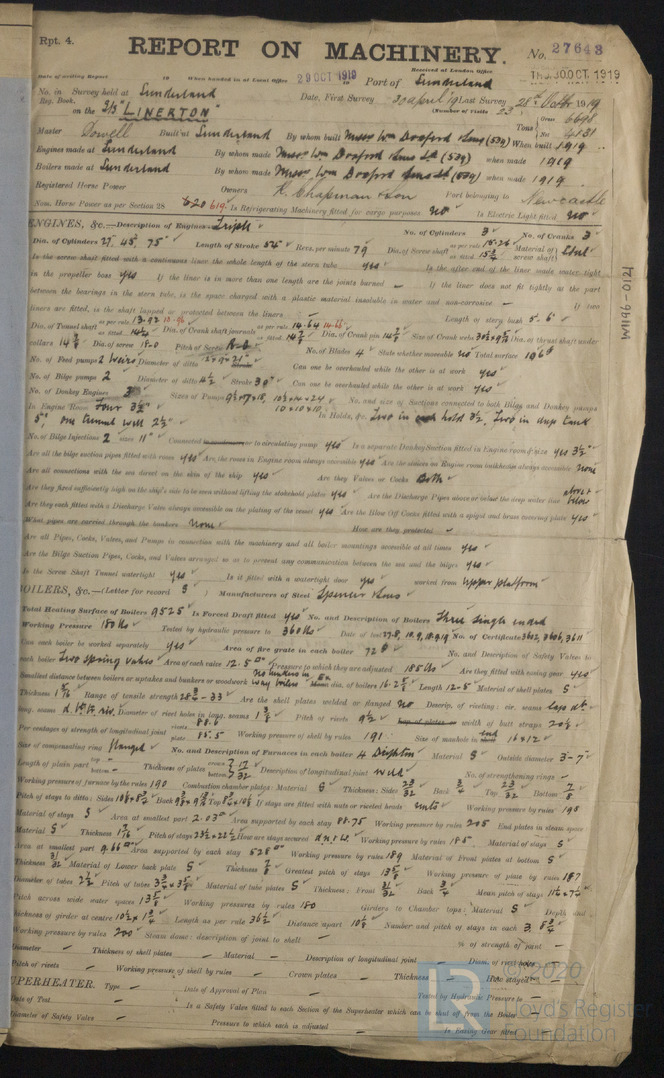 Rpt. 4.
REPORT ON MACHINERY.
No. 27643
Date of writing Report 19 When handed in at Local Office 29 OCT 1919 Received at London Office THU. 30 OCT. 1919
Port of Sunderland
No. in Survey held at Sunderland Date, First Survey 30 April 19 Last Survey 28th Octbr 1919
Reg. Book. (Number of Visits 23
on the S/S "LINERTON" Tons Gross 6698
Net 4131
Master Dowell Built at Sunderland By whom built Messrs Wm Doxford & Sons (539) When built 1919
Engines made at Sunderland By whom made Messrs Wm Doxford & Sons Ld (539) when made 1919
Boilers made at Sunderland By whom made Messrs Wm Doxford & Sons Ld (539) when made 1919
Registered Horse Power Owners R. Chapman & Son Port belonging to Newcastle
Nom. Horse Power as per Section 28 620 619 Is Refrigerating Machinery fitted for cargo purposes No Is Electric Light fitted No
ENGINES, &c.—Description of Engines Triple No. of Cylinders 3 No. of Cranks 3
Dia. of Cylinders 27. 45. 75" Length of Stroke 54" Revs. per minute 79 Dia. of Screw shaft as per rule 15.26 as fitted 15 3/4 Material of screw shaft Steel
Is the screw shaft fitted with a continuous liner the whole length of the stern tube yes Is the after end of the liner made water tight
in the propeller boss yes If the liner is in more than one length are the joints burned – If the liner does not fit tightly at the part
between the bearings in the stern tube, is the space charged with a plastic material insoluble in water and non-corrosive – If two
liners are fitted, is the shaft lapped or protected between the liners – Length of stern bush 5'-6"
Dia. of Tunnel shaft as per rule 13.92 13.96 as fitted 14 1/4 Dia. of Crank shaft journals as per rule 14.64 14.66 as fitted 14 7/8 Dia. of Crank pin 14 7/8 Size of Crank webs Dia. of thrust shaft under
collars 14 7/8 Dia. of screw 18-0 Pitch of Screw No. of Blades 4 State whether moveable no Total surface 106
No. of Feed pumps 2 Weirs Diameter of ditto Stroke Can one be overhauled while the other is at work yes
No. of Bilge pumps 2 Diameter of ditto 4 1/2 Stroke 30" Can one be overhauled while the other is at work yes
No. of Donkey Engines 3 Sizes of Pumps No. and size of Suctions connected to both Bilge and Donkey pumps
In Engine Room Four 3 1/2" In Holds, &c. Two in each hold 3 1/2, Two in deep tank
5", one tunnel well 2 1/2
No. of Bilge Injections 2 sizes 11" Connected to condenser, or to circulating pump yes Is a separate Donkey Suction fitted in Engine room & size yes 3 1/2"
Are all the bilge suction pipes fitted with roses yes Are the roses in Engine room always accessible yes Are the sluices on Engine room bulkheads always accessible none
Are all connections with the sea direct on the skin of the ship yes Are they Valves or Cocks Both
Are they fixed sufficiently high on the ship's side to be seen without lifting the stokehold plates yes Are the Discharge Pipes above or below the deep water line above & below
Are they each fitted with a Discharge Valve always accessible on the plating of the vessel yes Are the Blow Off Cocks fitted with a spigot and brass covering plate yes
What pipes are carried through the bunkers None How are they protected –
Are all Pipes, Cocks, Valves, and Pumps in connection with the machinery and all boiler mountings accessible at all times yes
Are the Bilge Suction Pipes, Cocks, and Valves arranged so as to prevent any communication between the sea and the bilges yes
Is the Screw Shaft Tunnel watertight yes Is it fitted with a watertight door yes worked from Upper platform
BOILERS, &c.—(Letter for record S ) Manufacturers of Steel Spencer & Sons
Total Heating Surface of Boilers 9525 Is Forced Draft fitted yes No. and Description of Boilers Three single ended
Working Pressure 180 lbs Tested by hydraulic pressure to 360 lbs Date of test 27.8, 10.9, 18.9.19 No. of Certificate 3602, 3606, 3611
Can each boiler be worked separately yes Area of fire grate in each boiler 72 No. and Description of Safety Valves to
each boiler Two spring valves Area of each valve 12.5 Pressure to which they are adjusted 185 lbs Are they fitted with easing gear yes
Smallest distance between boilers or uptakes and bunkers or woodwork No bunkers in way boilers dia. of boilers 16-2 Length 12-5 Material of shell plates S
Thickness 1 Range of tensile strength 28 3/4 – 33 Are the shell plates welded or flanged No Descrip. of riveting: cir. seams laps dr.
long. seams Diameter of rivet holes in long. seams 1 3/8 Pitch of rivets 9 1/2 Lap of plates or width of butt straps 20 1/2
Per centages of strength of longitudinal joint rivets 88.6 plate 85.5 Working pressure of shell by rules 191 Size of manhole in end 16 x 12
Size of compensating ring flanged No. and Description of Furnaces in each boiler 4 Deighton Material S Outside diameter 3-7
Length of plain part top – bottom – Thickness of plates crown bottom 17/32 Description of longitudinal joint weld No. of strengthening rings –
Working pressure of furnace by the rules 190 Combustion chamber plates: Material S Thickness: Sides 23/32 Back 3/4 Top 23/32 Bottom 7/8
Pitch of stays to ditto: Sides Back Top If stays are fitted with nuts or riveted heads nuts Working pressure by rules 195
Material of stays S Area at smallest part 2.03 Area supported by each stay 88.75 Working pressure by rules 205 End plates in steam space
Material S Thickness Pitch of stays How are stays secured d.n & w. Working pressure by rules 185 Material of stays S
Area at smallest part 9.66 Area supported by each stay 528 Working pressure by rules 189 Material of Front plates at bottom S
Thickness 31/32 Material of Lower back plate S Thickness 7/8 Greatest pitch of stays 13 5/8 Working pressure of plate by rules 187
Diameter of tubes 2 1/2 Pitch of tubes Material of tube plates S Thickness: Front 31/32 Back 3/4 Mean pitch of stays
Pitch across wide water spaces 13 5/8 Working pressures by rules 180 Girders to Chamber tops: Material S Depth and
thickness of girder at centre Length as per rule 36 1/2 Distance apart Number and pitch of stays in each 3.
Working pressure by rules 200 Steam dome: description of joint to shell – % of strength of joint –
Diameter – Thickness of shell plates – Material – Description of longitudinal joint – Diam. of rivet holes –
Pitch of rivets – Working pressure of shell by rules – Crown plates – Thickness – How stayed –
SUPERHEATER. Type – Date of Approval of Plan – Tested by Hydraulic Pressure to –
Date of Test – Is a Safety Valve fitted to each Section of the Superheater which can be shut off from the Boiler
Diameter of Safety Valve – Pressure to which each is adjusted – Is Easing Gear fitted
W1146-0171
© 2020
Lloyd's Register
Foundation